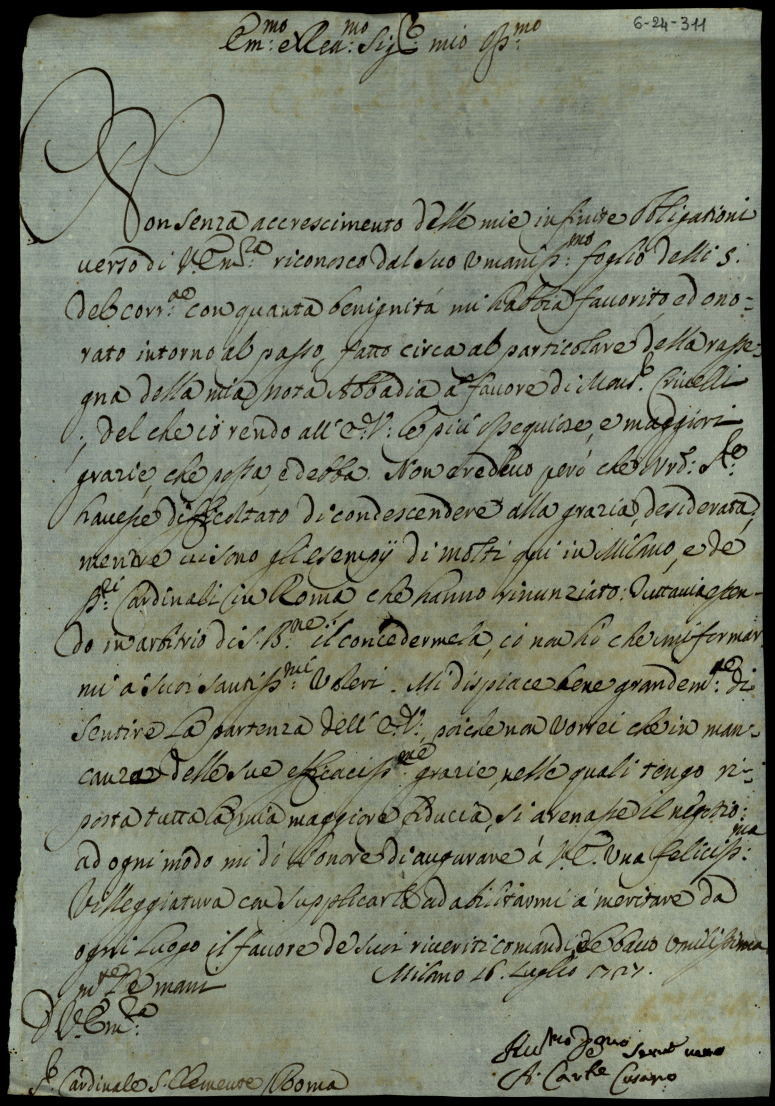 6-24-311
Em:mo e Rev:mo Sig:re mio Oss:mo
Non senza accrescimento delle mie infinite obligationi
verso di V. Em:za riconosco dal suo umaniss:mo foglio delli 5.
del corr:te con quanta benignitá mi habbia favorito, ed ono-
rato intorno al passo, fatto circa al particolare della rasse-
gna della mia nota Abbadia à favore di Mons:r Crivelli
; del che io rendo all'E.V: le piú ossequiose, e maggiori
grazie, che possa, e debba. Non credevo peró che N'ro: S:re
havesse difficoltato di condescendere alla grazia, desiderata,
mentre vi sono gli esempÿ di molti qui in Milano, e de
SS:ri Cardinali in Roma che hanno rinunziato: Tuttavia essen-
do in arbitrio di S. B:ne il concedermela, io non hó che uniformar
mi a suoi santiss:mi voleri. Mi dispiace bene grandem:te di
sentire la partenza dell'E.V:, poiche non vorrei che in man-
canza delle sue efficaciss:me grazie, nelle quali tengo ri-
posta tutta la mia maggiore fiducia, si arenasse il negotio:
ad ogni modo mi dó l'onore di augurare á V. E. una feliciss:ma
Villeggiatura con supplicarla ad abilitarmi á meritare da
ogni luogo il favore de suoi riveriti comandi, e le bacio umilissima
m:te le mani
Milano 16. Luglio 1727.
D V. Em:za
S:r Cardinale S. Clemente Roma
Hu:mo De:mo Serv: vero
A. Car:le Cusano